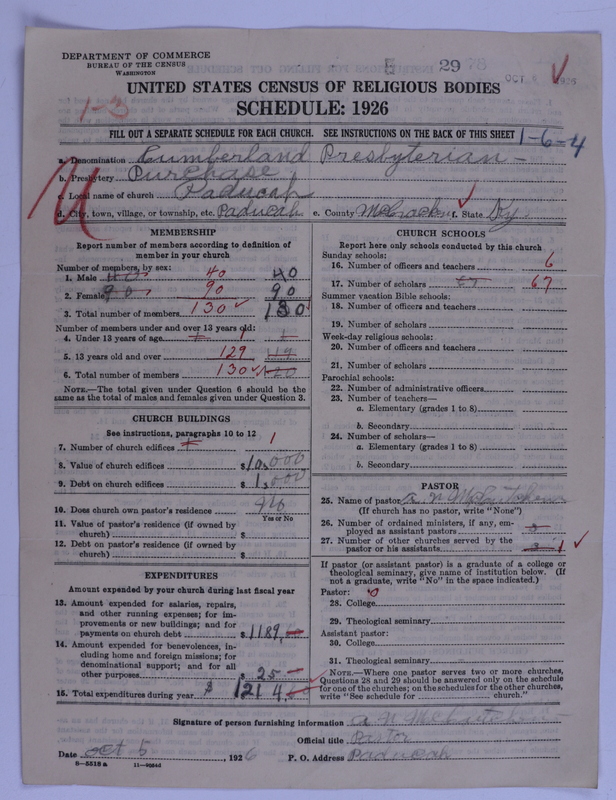 DEPARTMENT OF COMMERCE
BUREAU OF THE CENSUS
WASHINGTON
29 78
OCT 1926
UNITED STATES CENSUS OF RELIGIOUS BODIES
SCHEDULE: 1926
1-3
FILL OUT A SEPARATE SCHEDULE FOR EACH CHURCH. SEE INSTRUCTIONS ON THE BACK OF THIS SHEET
1-6-4
a. Denomination Cumberland Presbyterian -
b. Presbytery Purchase
c. Local name of church Paducah
d. City, town, village, or township, etc. Paducah e. County McCracken f. State Ky.
MEMBERSHIP
Report number of members according to definition of
member in your church
Number of members, by sex:
1. Male 40 40 40
2. Female 90 90 90
3. Total number of members 130 130
Number of members under and over 13 years old:
4. Under 13 years of age 1 1 1
5. 13 years old and over 129
6. Total number of members 130
NOTE.—The total given under Question 6 should be
same as the total of males and females given under Question 3.
CHURCH BUILDINGS
See instructions, paragraphs 10 to 12
7. Number of church edifices 1
8. Value of church edifices $10,000
9. Debt on church edifices $1,000
10. Does church own pastor's residence No
Yes or No
11. Value of pastor's residence (if owned by
church) $
12. Debt on pastor's residence (if owned by
church) $
EXPENDITURES
Amount expended by your church during last fiscal year
13. Amount expended for salaries, repairs,
and other running expenses; for im-
provements or new buildings; and for
payments on church debt $1189.
14. Amount expended for benevolences, in-
cluding home and foreign missions; for
denominational support; and for all
other purposes $25
15. Total expenditures during year $1214
CHURCH SCHOOLS
Report here only schools conducted by this church
Sunday schools:
16. Number of officers and teachers 6
17. Number of scholars 67 67
Summer vacation Bible schools:
18. Number of officers and teachers
19. Number of scholars
Week-day religious schools:
20. Number of officers and teachers
21. Number of scholars
Parochial schools:
22. Number of administrative officers
23. Number of teachers—
a. Elementary (grades 1 to 8)
b. Secondary
24. Number of scholars—
a. Elementary (grades 1 to 8)
b. Secondary
PASTOR
25. Name of pastor a n
(If church has no pastor, write "None")
26. Number of ordained ministers, if any, em-
ployed as assistant pastors
27. Number of other churches served by the
pastor or his assistants 1
If pastor (or assistant pastor) is a graduate of a college or
theological seminary, give name of institution below. (If
not a graduate, write "No" in the space indicated.)
Pastor:
28. College
29. Theological seminary
Assistant pastor:
30. College
31. Theological seminary
NOTE.—Where one pastor serves two or more churches,
Questions 28 and 29 should be answered only on the schedule
for one of the churches; on the schedules for the other churches,
write "See schedule for church."
Signature of person furnishing information a n
Official title Pastor
Date Oct 5, 1926 P. O. Address Paducah
8-5518 a